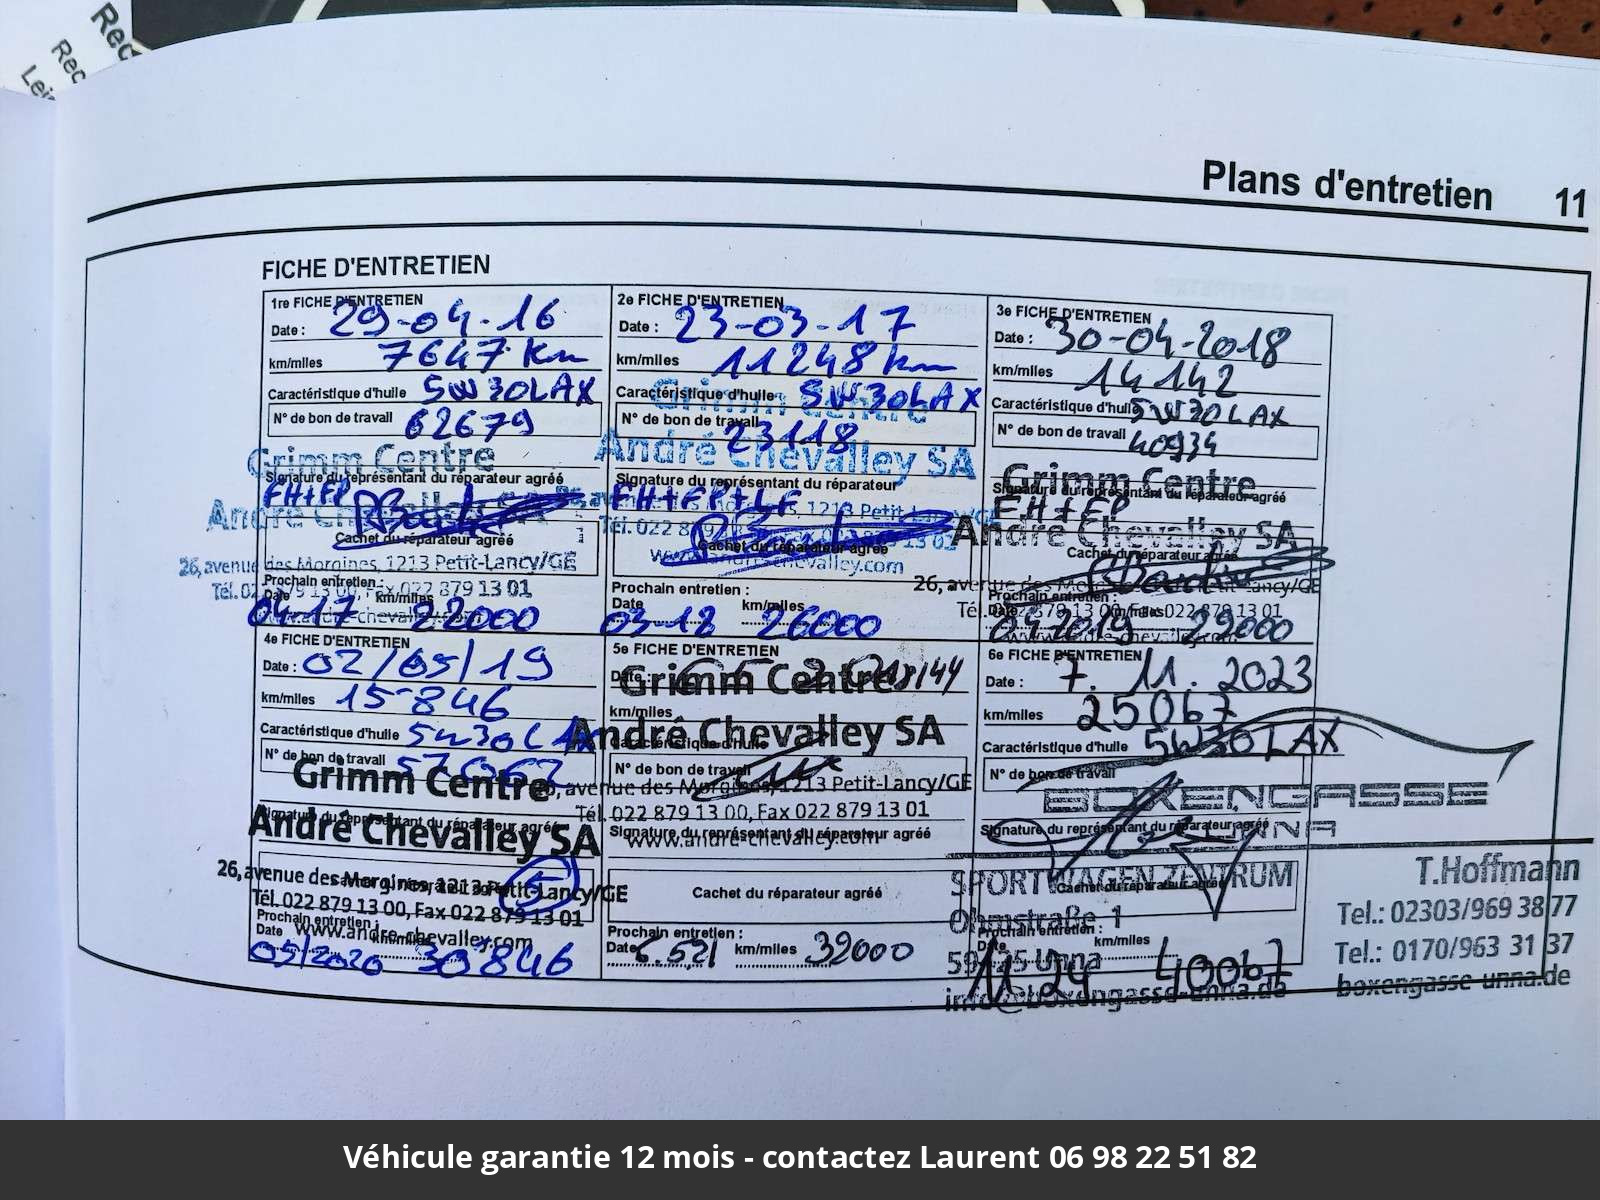 Plans d'entretien 11
FICHE D'ENTRETIEN
1re FICHE D'ENTRETIEN
Date : 29-04-16
km/miles 7647 km
Caractéristique d'huile 5W30LAX
N° de bon de travail 62679
Grimm Centre
Signature du représentant du réparateur agréé
FH+FP
André
Cachet du réparateur agréé
26, avenue des Morgines, 1213 Petit-Lancy/GE
Prochain entretien :
Tél. 022 879 13 00, Fax 022 879 13 01
Date km/miles
04-17 22000
2e FICHE D'ENTRETIEN
Date : 23-03-17
km/miles 11248 km
Caractéristique d'huile 5W30LAX
Grimm Centre
N° de bon de travail 23118
André Chevalley SA
Signature du représentant du réparateur
1213 Petit-Lancy
Tél. 022 879 13 01
Cachet du réparateur agréé
www.andre-chevalley.com
Prochain entretien :
Date km/miles
03-18 26000
3e FICHE D'ENTRETIEN
Date : 30-04-2018
km/miles 14142
Caractéristique d'huile 5W30LAX
N° de bon de travail 40934
Grimm Centre
Signature du représentant du réparateur agréé
FH+FP
André Chevalley SA
Cachet du réparateur agréé
26, avenue des Morgines, Petit-Lancy/GE
Prochain entretien :
Tél. 022 879 13 00, Fax 022 879 13 01
Date km/miles
04 2019 29000
4e FICHE D'ENTRETIEN
Date : 02/05/19
km/miles 15846
Caractéristique d'huile 5W30LAX
N° de bon de travail
Grimm Centre
Signature du représentant du réparateur agréé
André Chevalley SA
26, avenue des Morgines, 1213 Petit-Lancy/GE
Tél. 022 879 13 00, Fax 022 879 13 01
Prochain entretien :
www.andre-chevalley.com
Date km/miles
05/2020 30846
5e FICHE D'ENTRETIEN
Date :
Grimm Centre
km/miles
André Chevalley SA
Caractéristique d'huile
N° de bon de travail
26, avenue des Morgines, 1213 Petit-Lancy/GE
Tél. 022 879 13 00, Fax 022 879 13 01
Signature du représentant du réparateur agréé
www.andre-chevalley.com
Cachet du réparateur agréé
Prochain entretien :
Date km/miles 32000
6e FICHE D'ENTRETIEN
Date : 7. 11. 2023
km/miles 25067
Caractéristique d'huile 5W30LAX
N° de bon de travail
BOXENGASSE
UNNA
Signature du représentant du réparateur agréé
SPORTWAGEN ZENTRUM
Cachet du réparateur agréé
Ohmstraße 1
Prochain entretien :
Date km/miles
Unna
11 24 40067
info@boxengasse-unna.de
T.Hoffmann
Tel.: 02303/969 38 77
Tel.: 0170/963 31 37
boxengasse-unna.de
Véhicule garantie 12 mois - contactez Laurent 06 98 22 51 82